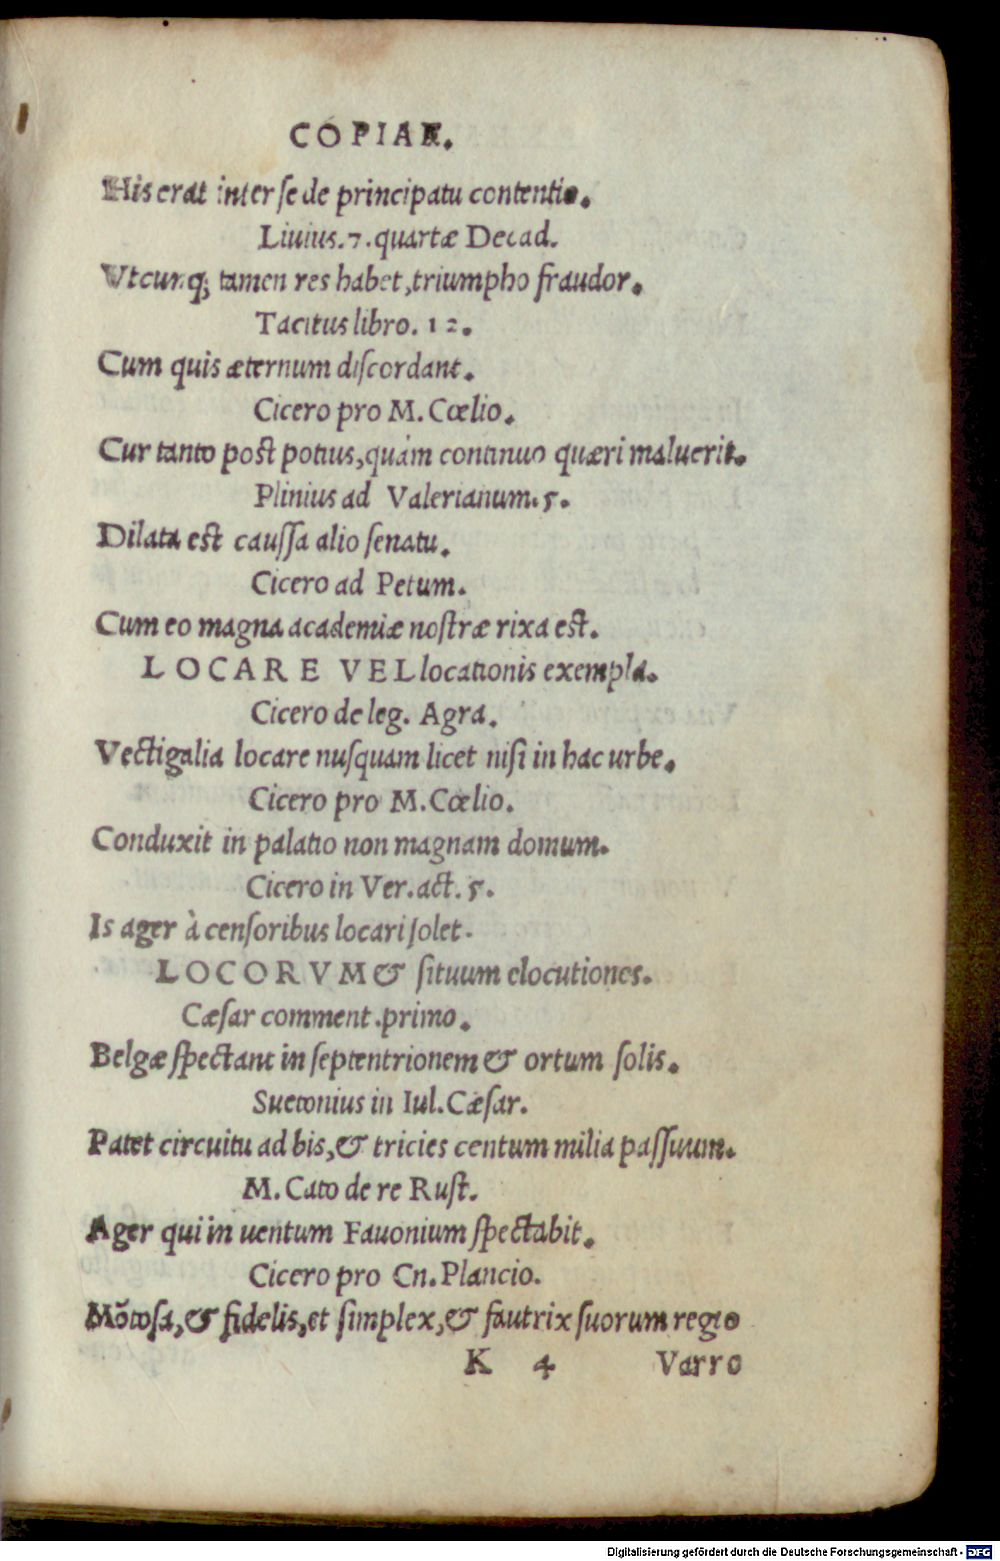 COPIAE.
His erat inter se de principatu contentio.
Liuius.7.quartæ Decad.
Vtcunq; tamen res habet,triumpho fraudor.
Tacitus libro. 12.
Cum quis æternum discordant.
Cicero pro M. Cœlio.
Cur tanto post potius,quàm continuo quæri maluerit.
Plinius ad Valerianum.5.
Dilata est caussa alio senatu.
Cicero ad Petum.
Cum eo magna academiæ nostræ rixa est.
LOCARE VEL locationis exempla.
Cicero de leg. Agra.
Vectigalia locare nusquam licet nisi in hac urbe.
Cicero pro M.Cœlio.
Conduxit in palatio non magnam domum.
Cicero in Ver.act.5.
Is ager à censoribus locari solet.
LOCORVM & situum elocutiones.
Cæsar comment.primo.
Belgæ spectant in septentrionem & ortum solis.
Suetonius in Iul.Cæsar.
Patet circuitu ad bis,& tricies centum milia passuum.
M.Cato de re Rust.
Ager qui in uentum Fauonium spectabit.
Cicero pro Cn.Plancio.
Mõtosa,& fidelis,et simplex,& fautrix suorum regio
K 4 Varro
Digitalisierung gefördert durch die Deutsche Forschungsgemeinschaft - DFG